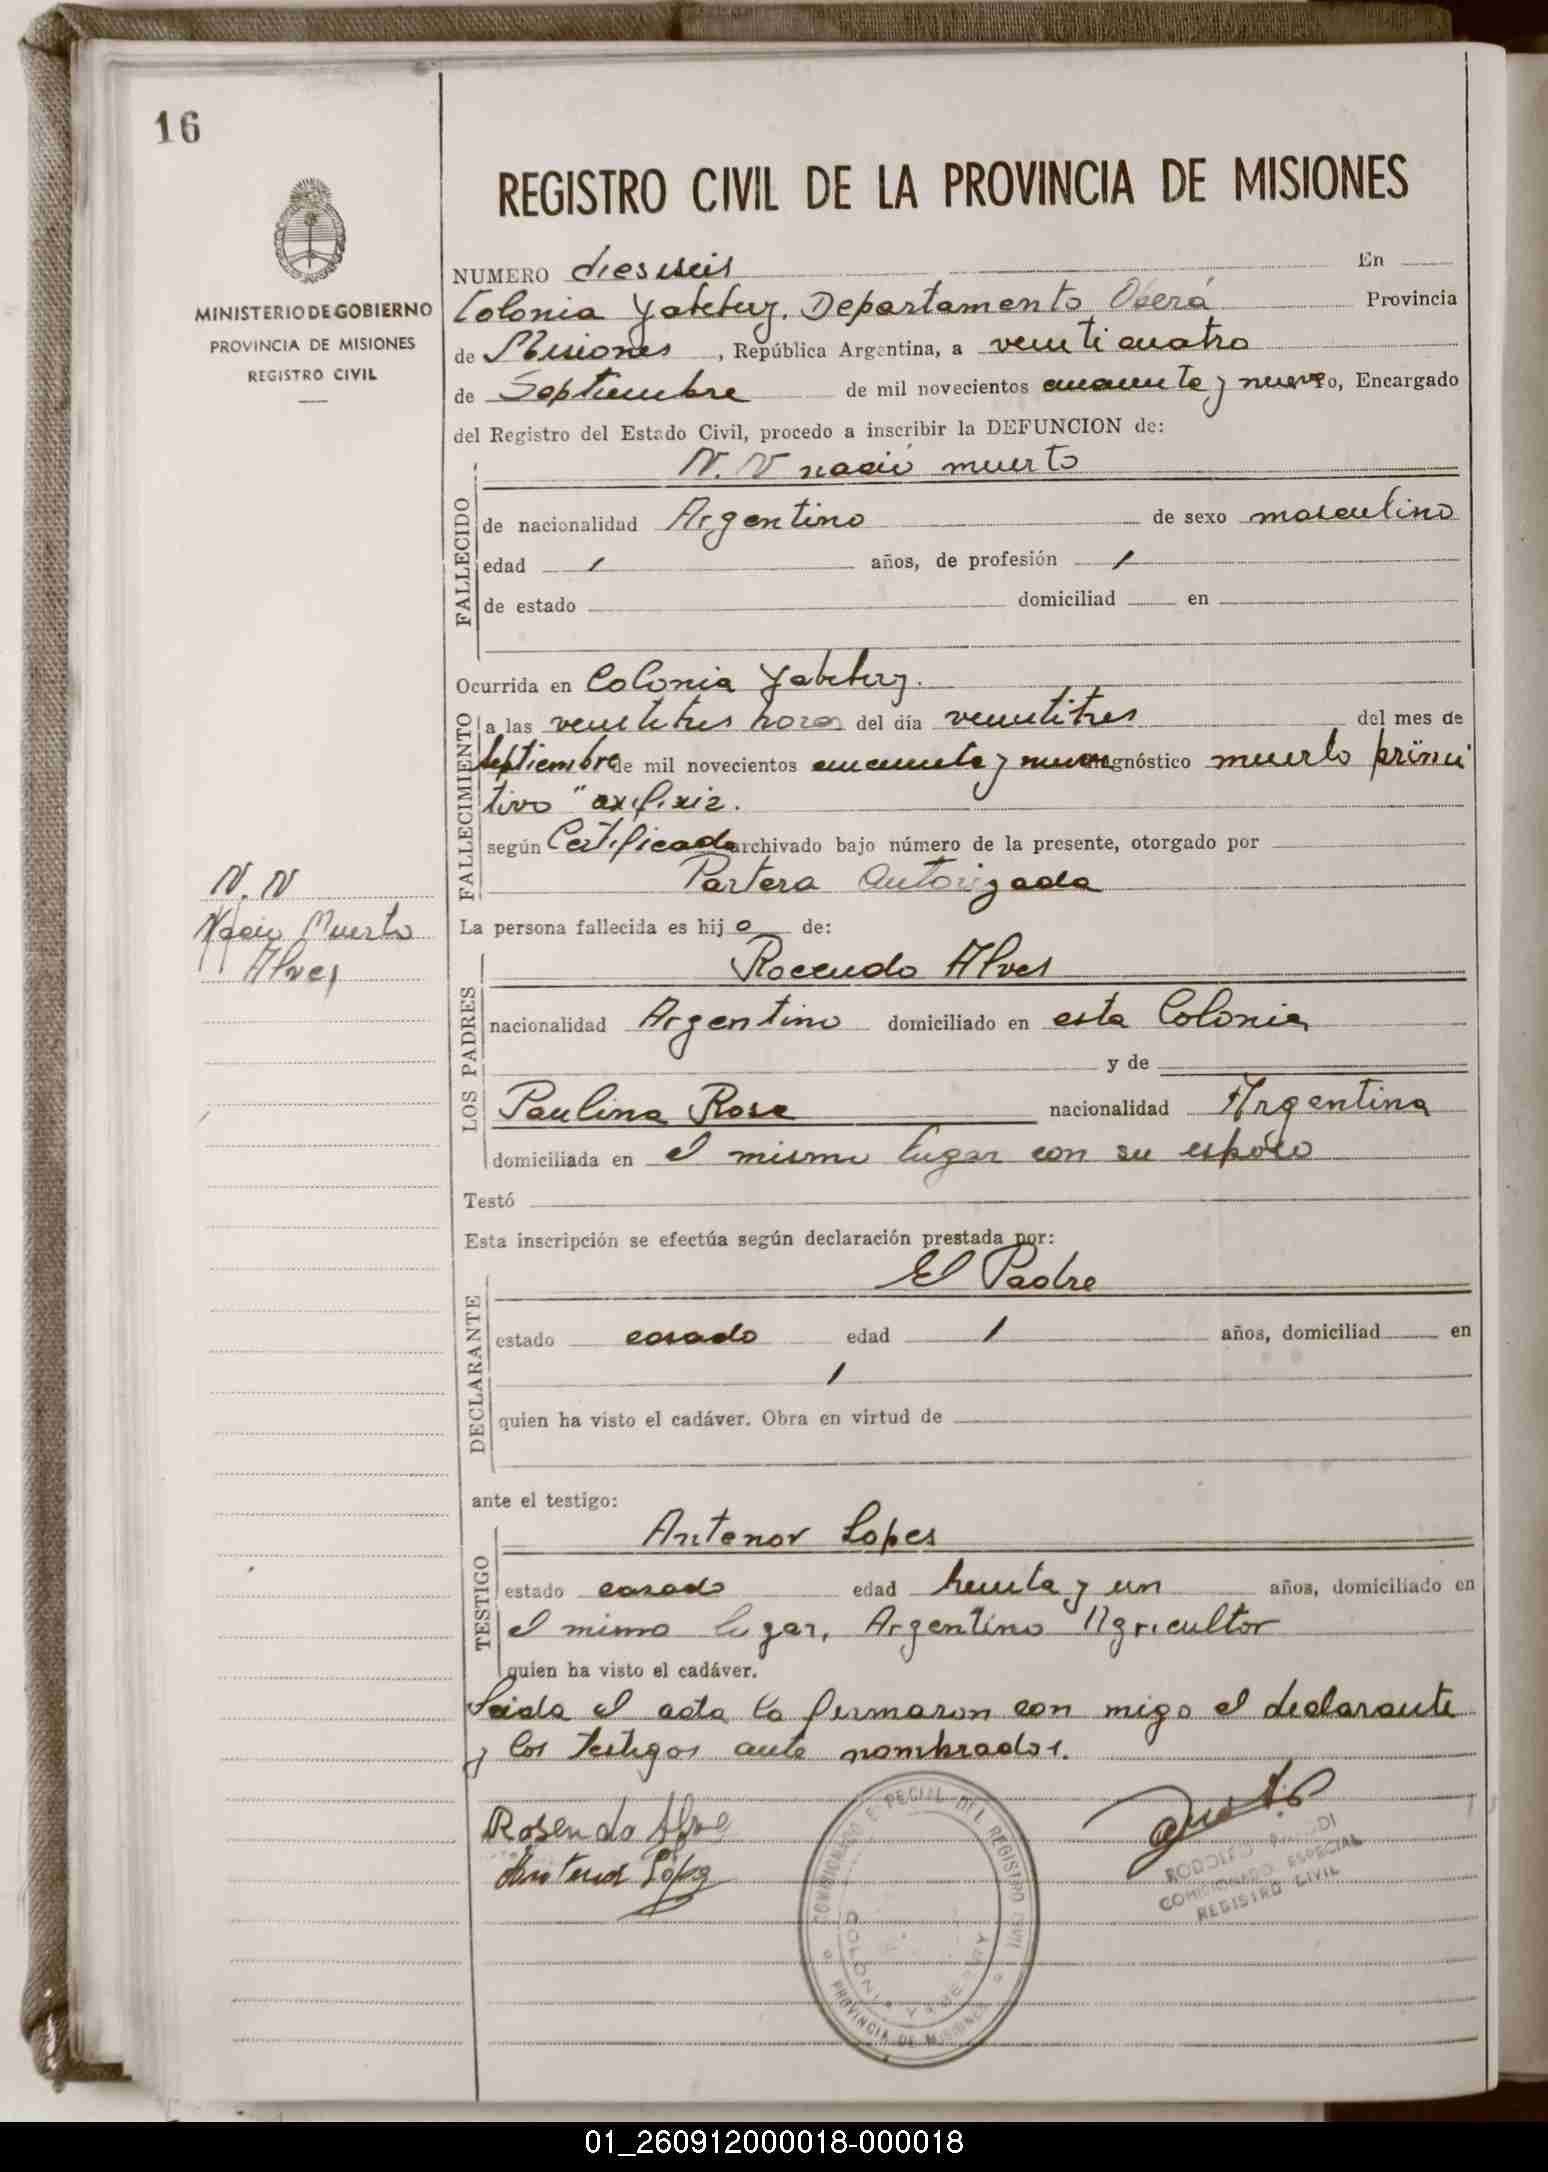 16
MINISTERIO DE GOBIERNO
PROVINCIA DE MISIONES
REGISTRO CIVIL
REGISTRO CIVIL DE LA PROVINCIA DE MISIONES
NUMERO dieseseis En
Colonia Yabebuy. Departamento Oberá Provincia
de Misiones, República Argentina, a veinticuatro
de Septiembre de mil novecientos cincuenta y nueve, Encargado
del Registro del Estado Civil, procedo a inscribir la DEFUNCION de:
N. N nació muerto
FALLECIDO
de nacionalidad Argentino de sexo masculino
edad / años, de profesión /
de estado domiciliad en
Ocurrida en Colonia Yabebuy.
FALLECIMIENTO
a las veintitres horas del día veintitres del mes de
Septiembre de mil novecientos cincuenta y nueve diagnóstico muerto
tivo "axfixia.
según Certificado archivado bajo número de la presente, otorgado por
Partera Autorizada
N. N
Nacio Muerto
Alves
La persona fallecida es hijo de:
LOS PADRES
Rocendo Alves
nacionalidad Argentino domiciliado en esta Colonia
y de
Paulina Rosa nacionalidad Argentina
domiciliada en el mismo lugar con su esposo
Testó
Esta inscripción se efectúa según declaración prestada por:
DECLARANTE
El Padre
estado casado edad / años, domiciliad en
/
quien ha visto el cadáver. Obra en virtud de
ante el testigo:
TESTIGO
Antenor Lopes
estado casado edad treinta y un años, domiciliado en
el mismo lugar, Argentino Agricultor
quien ha visto el cadáver.
Leida el acta la firmaron con migo el declarante
y los testigos ante nombrados.
Rosendo Alve
Antenor López
COMISIONADO ESPECIAL DEL REGISTRO CIVIL
COLONIA YABEBUY
PROVINCIA DE MISIONES
RODOLFO
COMISIONADO ESPECIAL
REGISTRO CIVIL
01_260912000018-000018